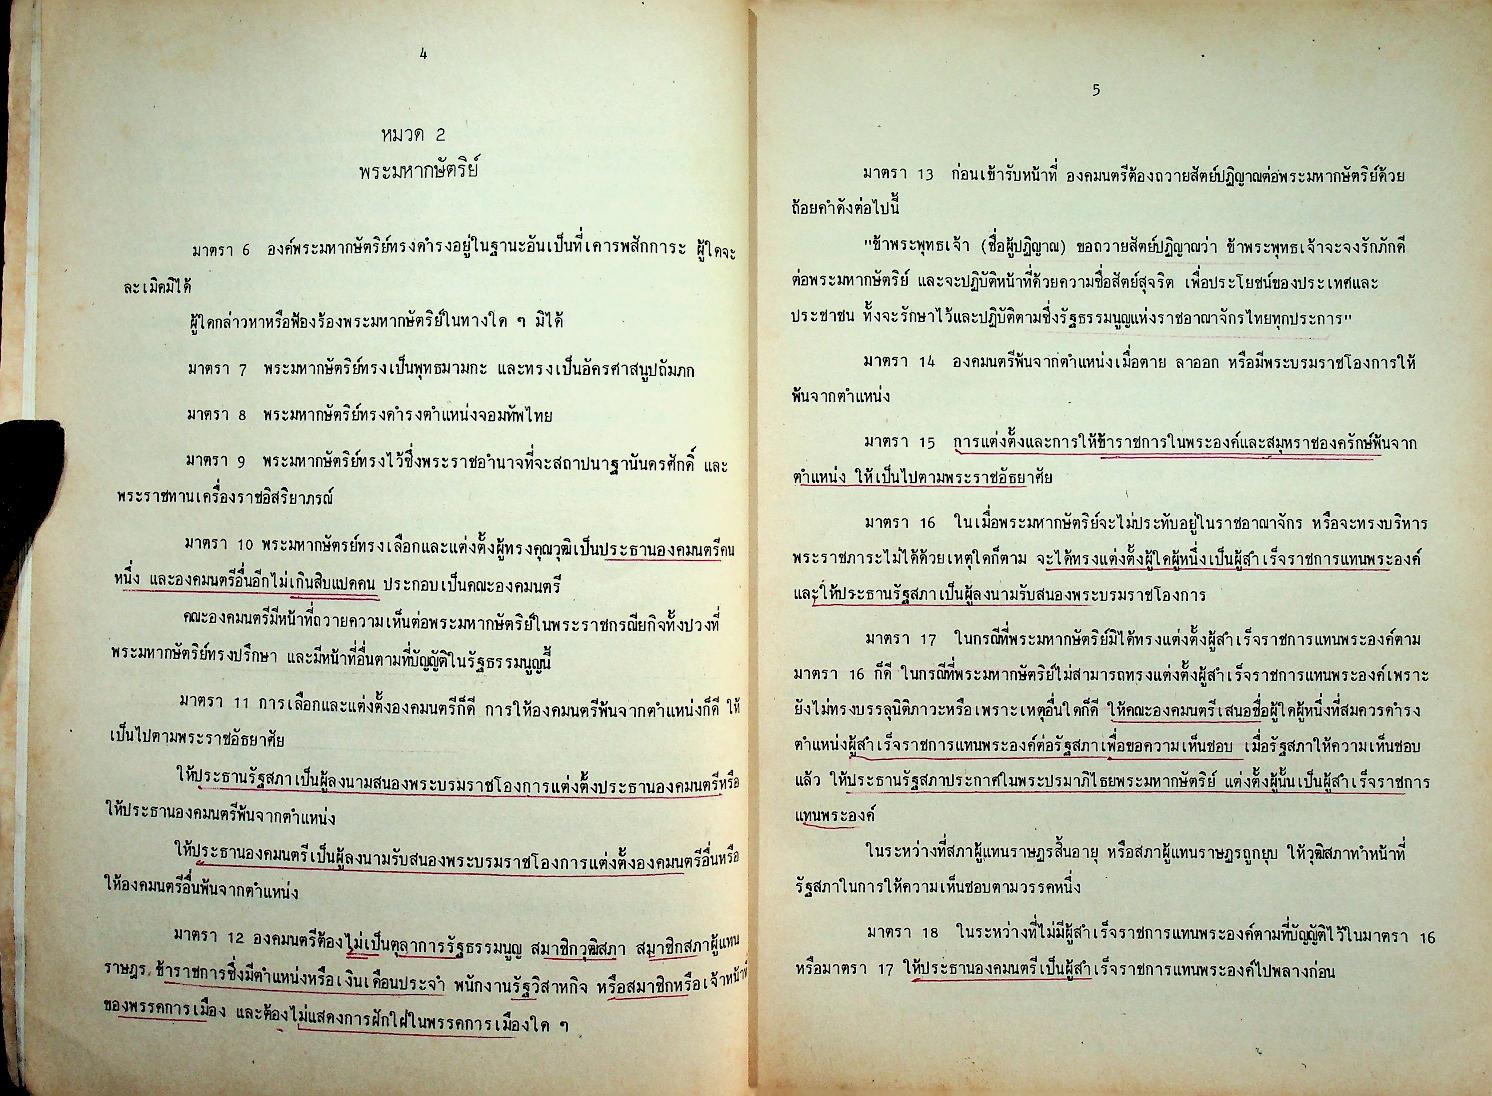 4
หมวด 2
พระมหากษัตริย์
มาตรา 6 องค์พระมหากษัตริย์ทรงดำรงอยู่ในฐานะอันเป็นที่เคารพสักการะ ผู้ใดจะ
ละเมิดมิได้
ผู้ใดกล่าวหาหรือฟ้องร้องพระมหากษัตริย์ในทางใด ๆ มิได้
มาตรา 7 พระมหากษัตริย์ทรงเป็นพุทธมามกะ และทรงเป็นอัครศาสนูปถัมภก
มาตรา 8 พระมหากษัตริย์ทรงดำรงตำแหน่งจอมทัพไทย
มาตรา 9 พระมหากษัตริย์ทรงไว้ซึ่งพระราชอำนาจที่จะสถาปนาฐานันดรศักดิ์ และ
พระราชทานเครื่องราชอิสริยาภรณ์
มาตรา 10 พระมหากษัตรย์ทรงเลือกและแต่งตั้งผู้ทรงคุณวุฒิเป็นประธานองคมนตรีคน
หนึ่ง และองคมนตรีอื่นอีกไม่เกินสิบแปดคน ประกอบเป็นคณะองคมนตรี
คณะองคมนตรีมีหน้าที่ถวายความเห็นต่อพระมหากษัตริย์ในพระราชกรณียกิจทั้งปวงที่
พระมหากษัตริย์ทรงปรึกษา และมีหน้าที่อื่นตามที่บัญญัติในรัฐธรรมนูญนี้
มาตรา 11 การเลือกและแต่งตั้งองคมนตรีก็ดี การให้องคมนตรีพ้นจากตำแหน่งก็ดี ให้
เป็นไปตามพระราชอัธยาศัย
ให้ประธานรัฐสภาเป็นผู้ลงนามสนองพระบรมราชโองการแต่งตั้งประธานองคมนตรีหรือ
ให้ประธานองคมนตรีพ้นจากตำแหน่ง
ให้ประธานองคมนตรีเป็นผู้ลงนามรับสนองพระบรมราชโองการแต่งตั้งองคมนตรีอื่นหรือ
ให้องคมนตรีอื่นพ้นจากตำแหน่ง
มาตรา 12 องคมนตรีต้องไม่เป็นตุลาการรัฐธรรมนูญ สมาชิกวุฒิสภา สมาชิกสภาผู้แทน
ราษฎร ข้าราชการซึ่งมีตำแหน่งหรือเงินเดือนประจำ พนักงานรัฐวิสาหกิจ หรือสมาชิกหรือเจ้าหน้าที่
ของพรรคการเมือง และต้องไม่แสดงการฝักใฝ่ในพรรคการเมืองใด ๆ
5
มาตรา 13 ก่อนเข้ารับหน้าที่ องคมนตรีต้องถวายสัตย์ปฏิญาณต่อพระมหากษัตริย์ด้วย
ถ้อยคำดังต่อไปนี้
"ข้าพระพุทธเจ้า (ชื่อผู้ปฏิญาณ) ขอถวายสัตย์ปฏิญาณว่า ข้าพระพุทธเจ้าจะจงรักภักดี
ต่อพระมหากษัตริย์ และจะปฏิบัติหน้าที่ด้วยความซื่อสัตย์สุจริต เพื่อประโยชน์ของประเทศและ
ประชาชน ทั้งจะรักษาไว้และปฏิบัติตามซึ่งรัฐธรรมนูญแห่งราชอาณาจักรไทยทุกประการ"
มาตรา 14 องคมนตรีพ้นจากตำแหน่งเมื่อตาย ลาออก หรือมีพระบรมราชโองการให้
พ้นจากตำแหน่ง
มาตรา 15 การแต่งตั้งและการให้ข้าราชการในพระองค์และสมุหราชองครักษ์พ้นจาก
ตำแหน่ง ให้เป็นไปตามพระราชอัธยาศัย
มาตรา 16 ในเมื่อพระมหากษัตริย์จะไม่ประทับอยู่ในราชอาณาจักร หรือจะทรงบริหาร
พระราชภาระไม่ได้ด้วยเหตุใดก็ตาม จะได้ทรงแต่งตั้งผู้ใดผู้หนึ่งเป็นผู้สำเร็จราชการแทนพระองค์
และให้ประธานรัฐสภาเป็นผู้ลงนามรับสนองพระบรมราชโองการ
มาตรา 17 ในกรณีที่พระมหากษัตริย์มิได้ทรงแต่งตั้งผู้สำเร็จราชการแทนพระองค์ตาม
มาตรา 16 ก็ดี ในกรณีที่พระมหากษัตริย์ไม่สามารถทรงแต่งตั้งผู้สำเร็จราชการแทนพระองค์เพราะ
ยังไม่ทรงบรรลุนิติภาวะหรือเพราะเหตุอื่นใดก็ดี ให้คณะองคมนตรีเสนอชื่อผู้ใดผู้หนึ่งที่สมควรดำรง
ตำแหน่งผู้สำเร็จราชการแทนพระองค์ต่อรัฐสภาเพื่อขอความเห็นชอบ เมื่อรัฐสภาให้ความเห็นชอบ
แล้ว ให้ประธานรัฐสภาประกาศในพระปรมาภิไธยพระมหากษัตริย์ แต่งตั้งผู้นั้นเป็นผู้สำเร็จราชการ
แทนพระองค์
ในระหว่างที่สภาผู้แทนราษฎรสิ้นอายุ หรือสภาผู้แทนราษฎรถูกยุบ ให้วุฒิสภาทำหน้าที่
รัฐสภาในการให้ความเห็นชอบตามวรรคหนึ่ง
มาตรา 18 ในระหว่างที่ไม่มีผู้สำเร็จราชการแทนพระองค์ตามที่บัญญัติไว้ในมาตรา 16
หรือมาตรา 17 ให้ประธานองคมนตรีเป็นผู้สำเร็จราชการแทนพระองค์ไปพลางก่อน